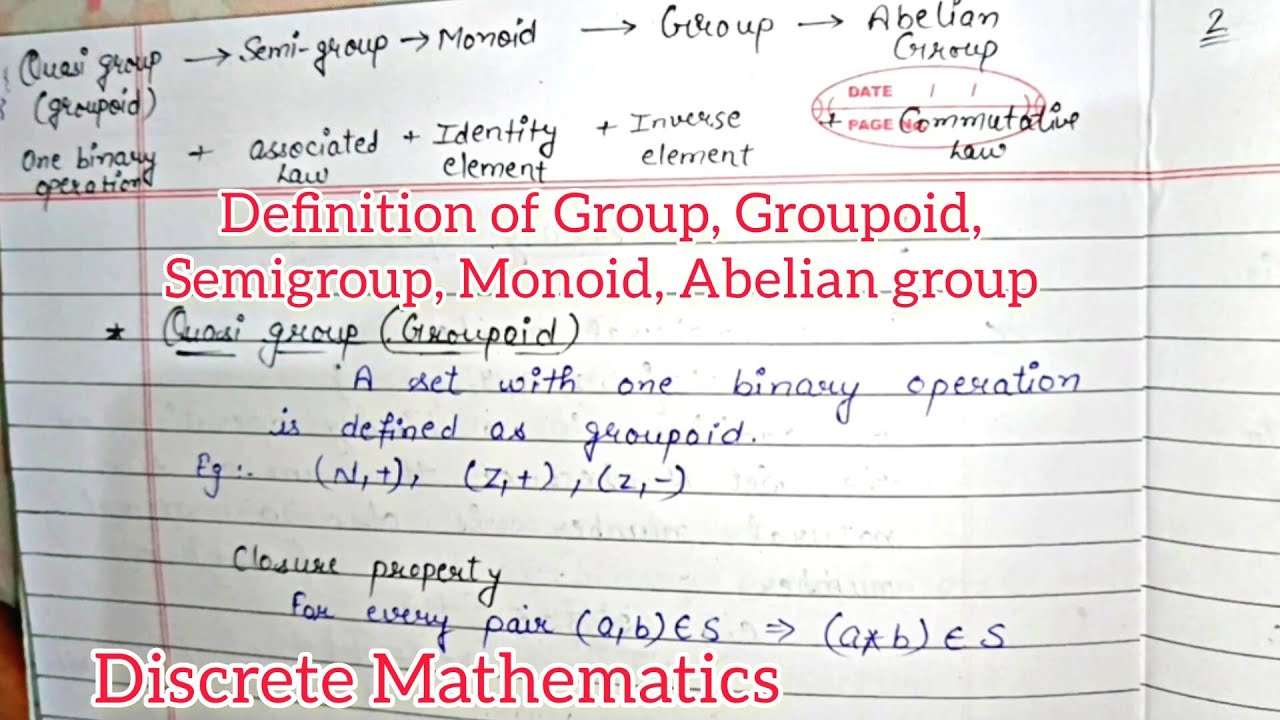 Quasi group → Semi-group → Monoid → Group → Abelian Group
2
(groupoid)
One binary operation + associated Law + Identity element + Inverse element + Commutative Law
DATE / /
PAGE No
Definition of Group, Groupoid,
Semigroup, Monoid, Abelian group
* Quasi group (Groupoid)
A set with one binary operation
is defined as groupoid.
Eg:- (N,+), (Z,+), (Z,-)
Closure property
For every pair (a,b) ∈ S ⇒ (a*b) ∈ S
Discrete Mathematics